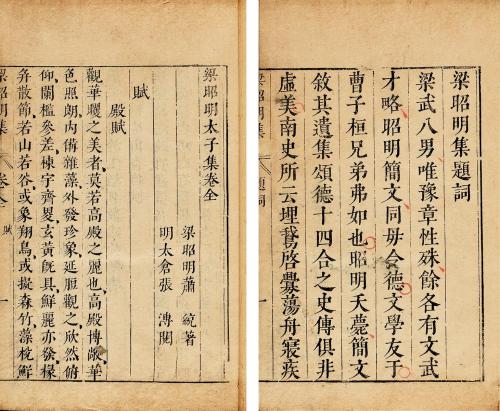 梁昭明集題詞
梁武八男唯豫章性殊餘各有文武
才略昭明簡文同毋令德文學友于
曹子桓兄弟弗如也昭明夭薨簡文
敘其遺集頌德十四合之史傳俱非
虛美南史所云埋鵞啓釁蕩舟寢疾
梁昭明集 題詞 一
梁昭明太子集卷全
梁昭明蕭統著
明太倉張溥閱
賦
殿賦
觀華曖之美者莫若高殿之麗也高殿博敞華
色照朗內備雜藻外發珍象延脰觀之欣然俯
仰闌檻參差棟宇齊玄黃旣具鮮麗亦發椽
弁散節若山若谷或象翔鳥或擬森竹藻梲鮮
梁昭明集 卷全 賦 一